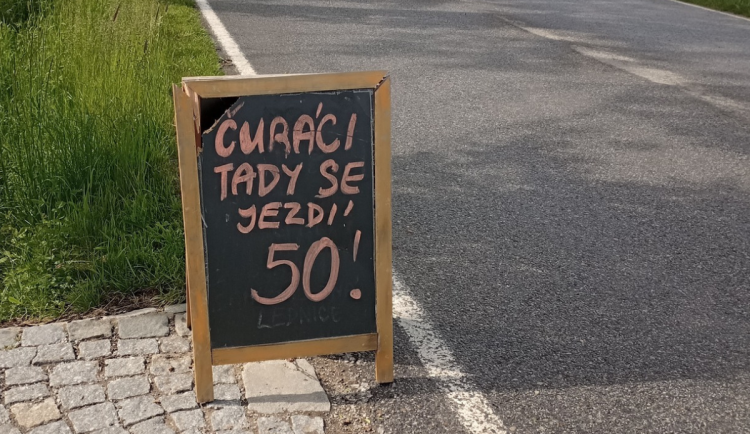 ČURÁCI
TADY SE
JEZDÍ
50!
LEDNICE